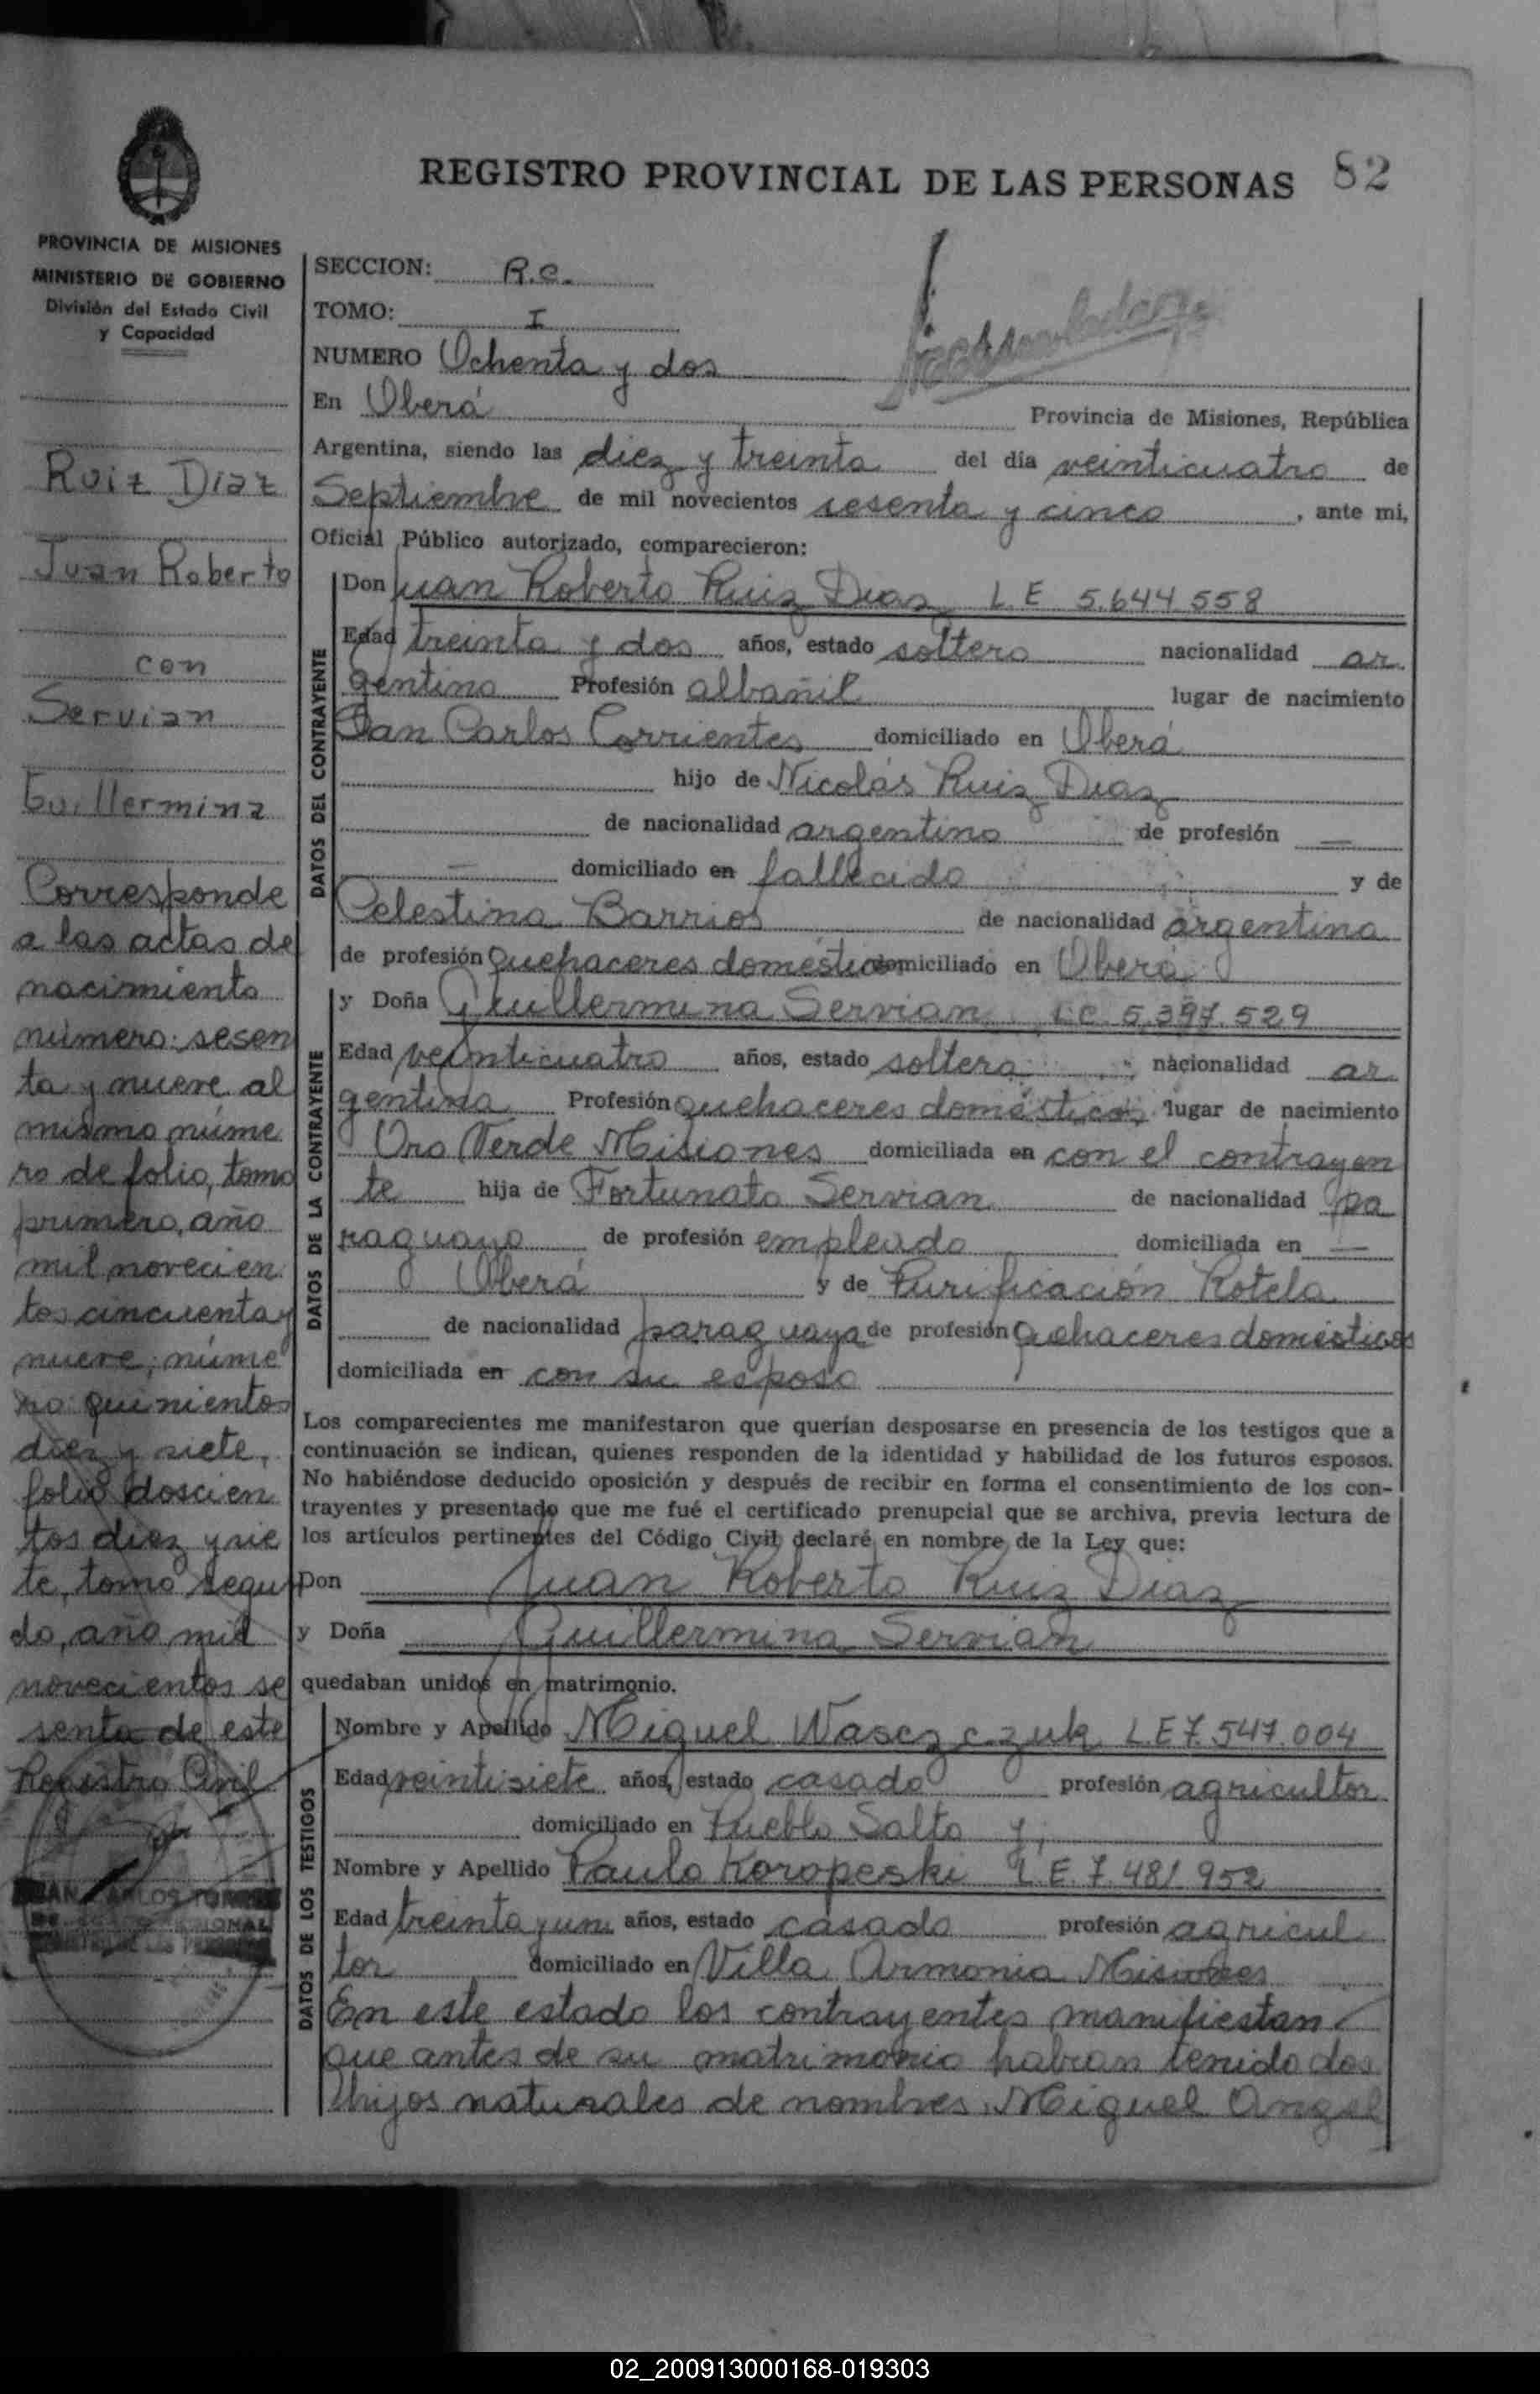 REGISTRO PROVINCIAL DE LAS PERSONAS 82
PROVINCIA DE MISIONES
MINISTERIO DE GOBIERNO
División del Estado Civil
y Capacidad
Ruiz Diaz
Juan Roberto
con
Servian
Guillermina
Corresponde
a las actas de
nacimiento
número: sesen
ta y nueve al
mismo núme
ro de folio, tomo
primero, año
mil novecien
tos cincuenta y
nueve; núme
ro quinientos
diez y siete,
folio doscien
tos diez y sie
te, tomo segun
do, año mil
novecientos se
senta de este
Registro Civil
SECCION: R.C.
TOMO: I
NUMERO Ochenta y dos
En Oberá Provincia de Misiones, República
Argentina, siendo las diez y treinta del día veinticuatro de
Septiembre de mil novecientos sesenta y cinco, ante mi,
Oficial Público autorizado, comparecieron:
DATOS DEL CONTRAYENTE
Don Juan Roberto Ruiz Diaz L.E 5.644.558
Edad treinta y dos años, estado soltero nacionalidad ar
gentino Profesión albañil lugar de nacimiento
San Carlos Corrientes domiciliado en Oberá
hijo de Nicolás Ruiz Diaz
de nacionalidad argentino de profesión —
— domiciliado en fallecido y de
Celestina Barrios de nacionalidad argentina
de profesión Quehaceres domésticos domiciliado en Oberá
DATOS DE LA CONTRAYENTE
y Doña Guillermina Servian L.C. 5.397.529
Edad veinticuatro años, estado soltera nacionalidad ar
gentina Profesión quehaceres domésticos lugar de nacimiento
Oro Verde Misiones domiciliada en con el contrayen
te hija de Fortunato Servian de nacionalidad pa
raguayo de profesión empleado domiciliada en —
Oberá y de Purificación Rotela
de nacionalidad paraguaya de profesión Quehaceres domésticos
domiciliada en con su esposo
Los comparecientes me manifestaron que querían desposarse en presencia de los testigos que a
continuación se indican, quienes responden de la identidad y habilidad de los futuros esposos.
No habiéndose deducido oposición y después de recibir en forma el consentimiento de los con-
trayentes y presentado que me fué el certificado prenupcial que se archiva, previa lectura de
los artículos pertinentes del Código Civil declaré en nombre de la Ley que:
Don Juan Roberto Ruiz Diaz
y Doña Guillermina Servian
quedaban unidos en matrimonio.
DATOS DE LOS TESTIGOS
Nombre y Apellido Miguel Wasczczuk L.E 7.547.004
Edad veintisiete años, estado casado profesión agricultor
domiciliado en Pueblo Salto y,
Nombre y Apellido Paulo Koropeski L.E. 7.481.952
Edad treinta y un años, estado casado profesión agricul
tor domiciliado en Villa Armonia Misiones
En este estado los contrayentes manifiestan
que antes de su matrimonio habian tenido dos
hijos naturales de nombres Miguel Angel
02_200913000168-019303